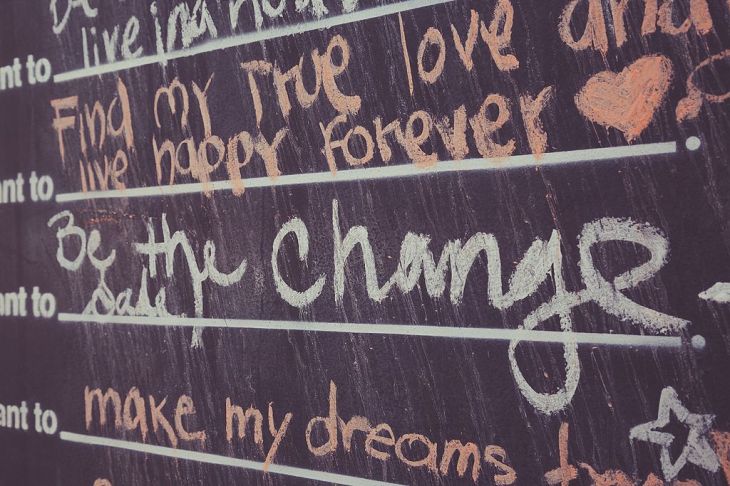 live in a
ant to
Find my True love and
live happy forever
ant to
Be the Change
ant to
make my dreams
ant to